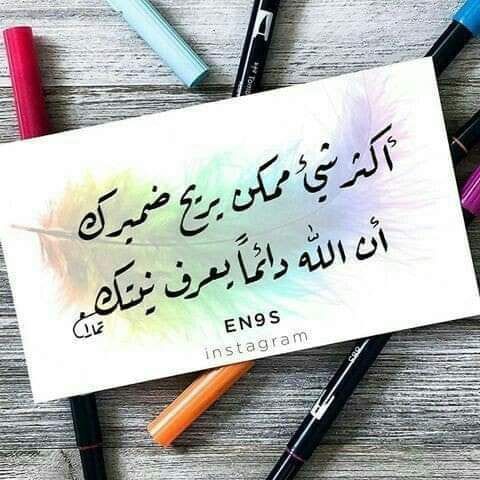 أكثر شيء ممكن يريح ضميرك
أن الله دائماً يعرف نيتك
EN9S
instagram